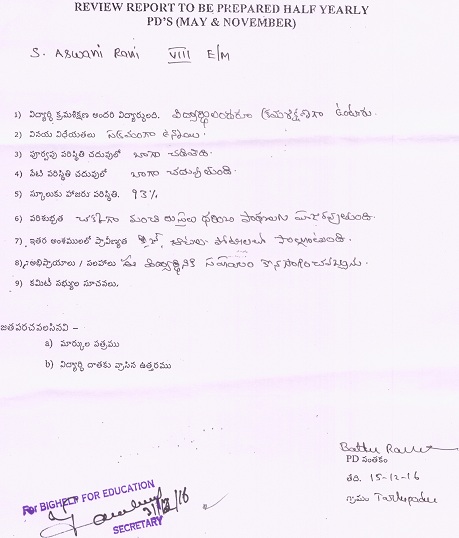 REVIEW REPORT TO BE PREPARED HALF YEARLY
PD'S (MAY & NOVEMBER)
S. Aswani Rani VIII E/M
1) విద్యార్థి క్రమశిక్షణ అందరి విద్యార్థులది. విద్యార్థులందరూ క్రమశిక్షణగా ఉంటారు.
2) వినయ విధేయతలు
3) పూర్వపు పరిస్థితి చదువులో బాగా చదివేది.
4) నేటి పరిస్థితి చదువులో బాగా చదువుతుంది.
5) స్కూలుకు హాజరు పరిస్థితి. 93%
6) పరిశుభ్రత చక్కగా మంచి దుస్తులు ధరించి
7) ఇతర అంశములలో ప్రావీణ్యత క్విజ్, పోటీలలో పాల్గొంటుంది.
8) అభిప్రాయాలు / సలహాలు ఈ విద్యార్థినికి సహాయం
9) కమిటీ సభ్యుల సూచనలు.
జతపరచవలసినవి –
a) మార్కుల పత్రము
b) విద్యార్థి దాతకు వ్రాసిన ఉత్తరము
PD సంతకం
తేది. 15-12-16
గ్రామం
For BIGHELP FOR EDUCATION
SECRETARY